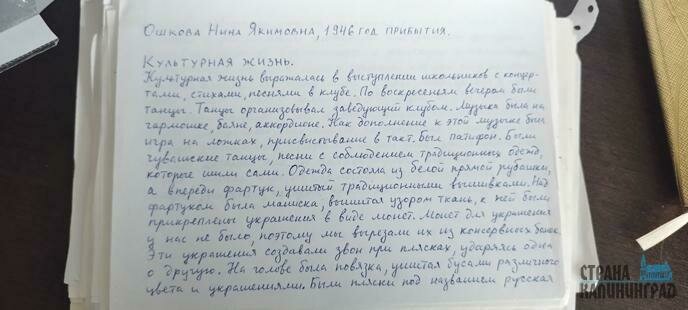 Ошкова Нина Якимовна, 1946 год прибытия.
Культурная жизнь.
Культурная жизнь выражалась в выступлении школьников с концер-
тами, стихами, песнями в клубе. По воскресеньям вечером были
танцы. Танцы организовывал заведующий клубом. Музыка была на
гармошке, баяне, аккордионе. Как дополнение к этой музыке была
игра на ложках, присвистывание в такт. Был патифон. Были
чувашские танцы, песни с соблюдением традиционных одежд,
которые шили сами. Одежда состояла из белой прямой рубашки,
а впереди фартук, ушитый традиционными вышивками. Над
фартуком была манишка, вышитая узором ткань, к ней были
прикреплены украшения в виде монет. Монет для украшения
у нас не было, поэтому мы вырезали их из консервных банок.
Эти украшения создавали звон при плясках, ударяясь одна
о другую. На голове была повязка, ушитая бусами различного
цвета и украшениями. Были пляски под названием русская
СТРАНА
КАЛИНИНГРАД